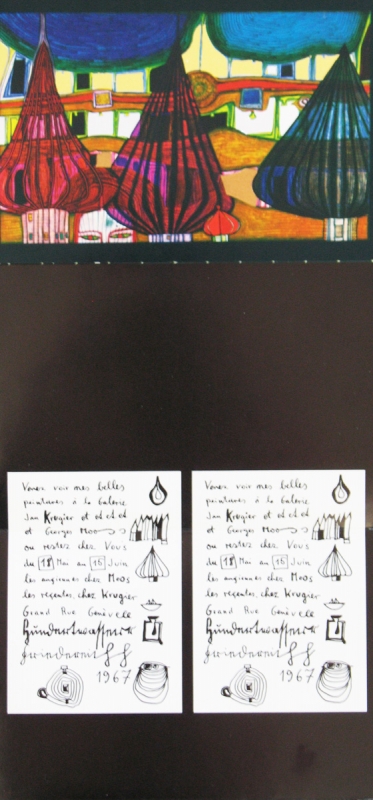 Venez voir mes belles
peintures à la Galerie
Jan Krugier et et et et
et Georges Moos
ou restez chez Vous
du 18 Mai au 15 Juin
les anciennes chez Moos
les recentes chez Krugier
Grand Rue Genève
Hundertwasser
Friedereich
1967
Venez voir mes belles
peintures à la Galerie
Jan Krugier et et et et
et Georges Moos
ou restez chez Vous
du 18 Mai au 15 Juin
les anciennes chez Moos
les recentes chez Krugier
Grand Rue Genève
Hundertwasser
Friedereich
1967